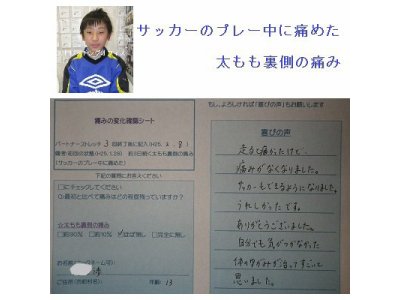 サッカーのプレー中に痛めた
太もも裏側の痛み
痛みの変化確認シート
パートナーストレッチ 3 回終了後に記入(H25. 2. 8)
(サッカーのプレー中に痛めた)
下記の質問にお答えください
□にチェックしてください
①最初と比べて痛みはどの程度残っていますか?
☆太もも裏側の痛み
□完全に無し
年齢: 13
もし、よろしければ「喜びの声」もお願いします
喜びの声
走ると痛かったけど、
痛みがなくなりました。
サッカーもできるようになりました。
うれしかったです。
ありがとうございました。
自分でも気がつかなかった
体のゆがみが治ってすごいと
思いました。